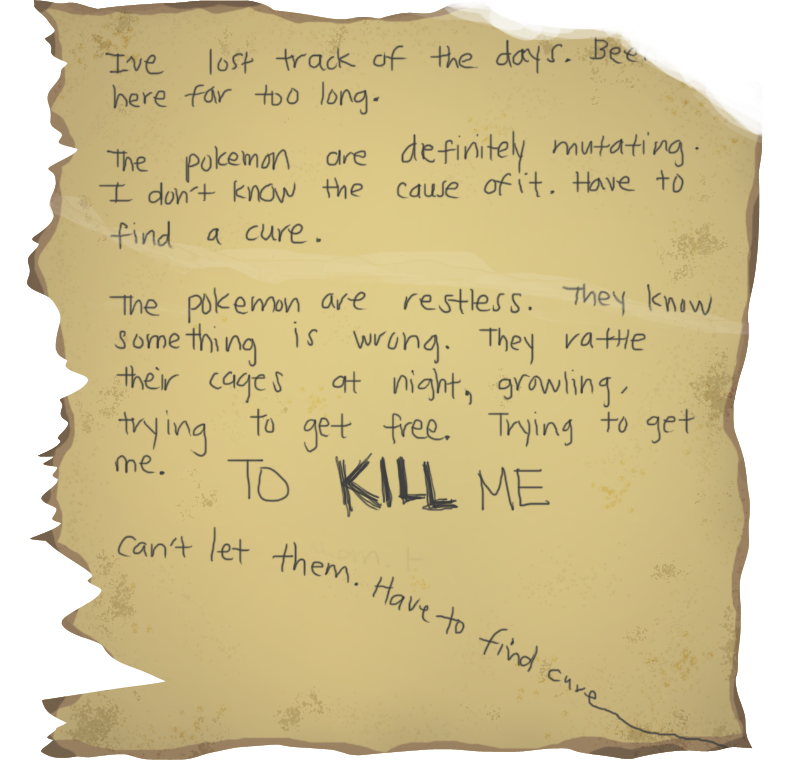 Ive lost track of the days. Bee
here far too long.
The pokemon are definitely mutating.
I don't know the cause of it. Have to
find a cure.
The pokemon are restless. They know
something is wrong. They rattle
their cages at night, growling,
trying to get free. Trying to get
me. TO KILL ME
Can't let them. Have to find cure